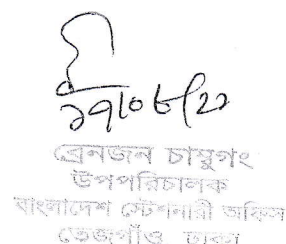 ২৭/০৮/২২
ব্রেনজন চাম্বুগং
উপপরিচালক
বাংলাদেশ স্টেশনারী অফিস
তেজগাঁও ঢাকা